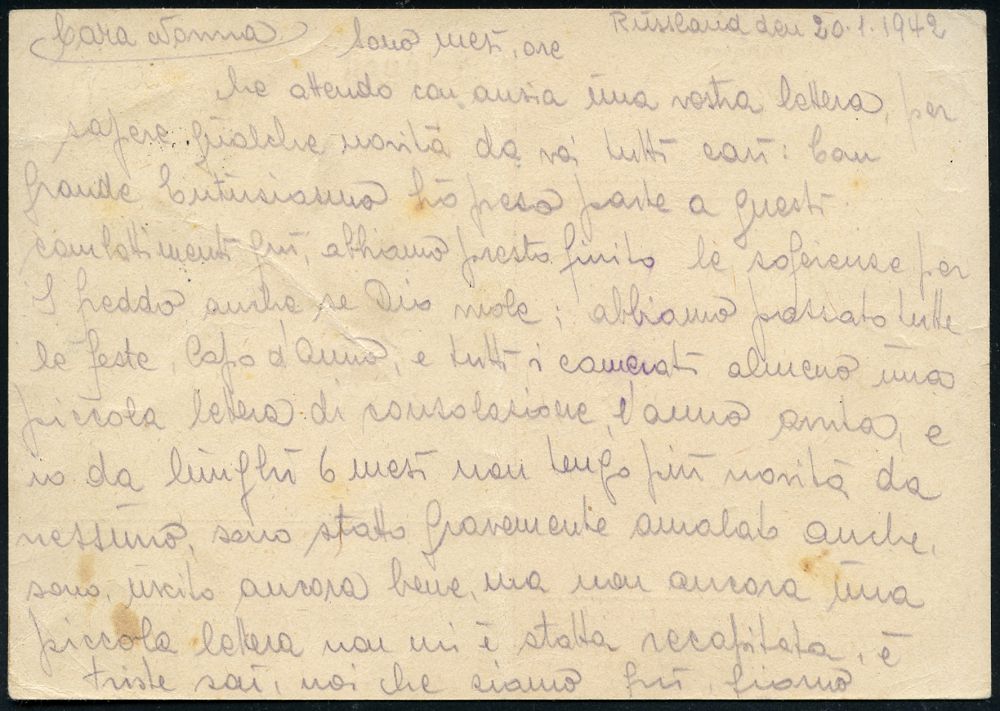 Russland den 20.1.1942
Cara Nonna Sono mesi, ore
che attendo con ansia una vostra lettera, per
sapere qualche novità da voi tutti cari: Con
grande Entusiasmo hò preso parte a questi
combattimenti qui, abbiamo presto finito le soferense per
I freddo anche se Dio vole; abbiamo passato tutte
le feste, Capo d'Anno, e tutti i camerati almeno una
piccola lettera di consolasione, l'anno avuta, e
io da lunghi 6 mesi non tengo più novità da
nessuno, sono statto gravemente amalato anche,
sono, uscito ancora bene, ma non ancora una
piccola lettera non mi è statta recapitata, è
triste sai, noi che siamo qui, siamo